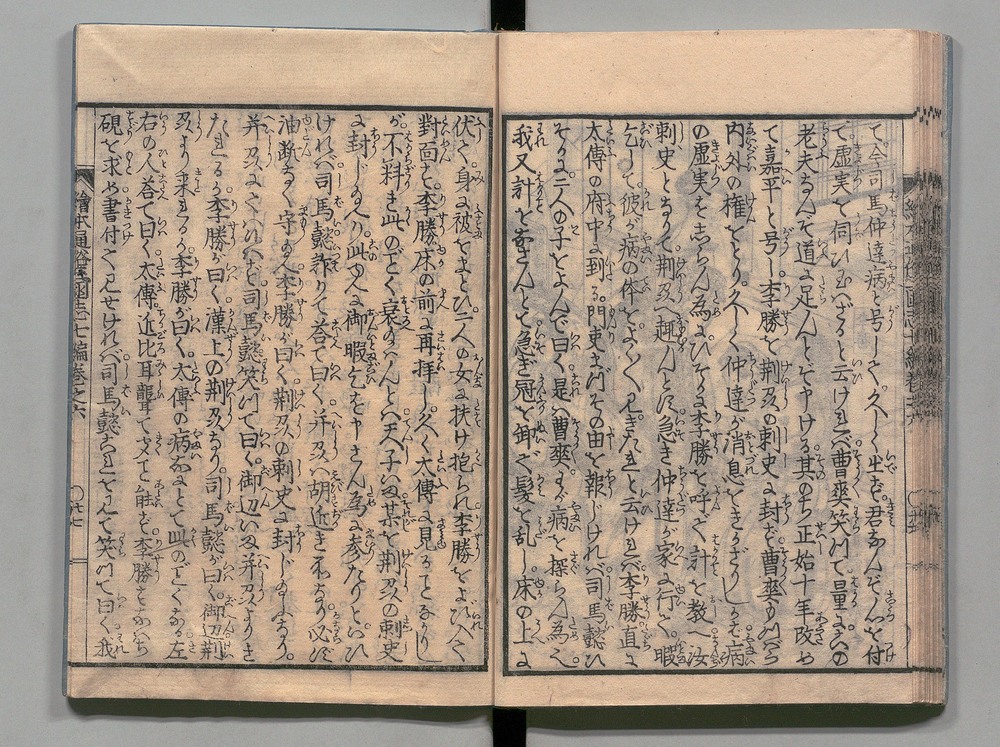 て今司馬仲達病と号して久しく出ず君なんぞ心を付
て虚実を伺ひ玉はざると云ければ曹爽笑て量るにかの
老夫なんぞ道に足んとぞ申ける其のち正始十年改め
て嘉平と号し李勝を荊州の刺史に封ず曹爽もつぱら
内外の権をとり久しく仲達が消息をきかざりしかば病
の虚実をしらん為にひそかに李勝を呼で計を教へ汝
刺史となりて荊州へ趣んとに急ぎ仲達が家に行て暇
乞して彼が病の体をよくよく見きたれと云ければ李勝直に
太傅の府中に到る門吏まづその由を報じければ司馬懿ひ
そかに二人の子をよんで曰く是は曹爽が我病を探らん為也
我又計をなさんとて急ぎ冠を卸ぎ髪を乱し床の上に
伏て身に被をまとひ二人の女に扶け抱られ李勝をよび入て
對面す李勝床の前に再拝し久く太傅に見ることなかりし
が不料き此のごとく衰玉はんとは天子いま某を荊州の刺史
に封じ玉へり此ゆへに御暇乞を申さん為に参たりといひ
ければ司馬懿詐りて荅て曰く并州は胡近き所なり必ず
油断なく守り玉へ李勝が曰く荊州の刺史に封ぜらるなり
并州にてはなしと司馬懿笑て曰く御辺いま并州よりき
たれるか李勝が曰く漢上の荊州なり司馬懿が曰く御辺荊
州より来れるか李勝が曰く太傅の病なにとて此のごとくなる左
右の人荅て曰く太傅近比耳聾て
硯を求め書付て見せければ司馬懿これを見て笑て曰く我
繪本通俗三國志七編巻之六
〇廿七